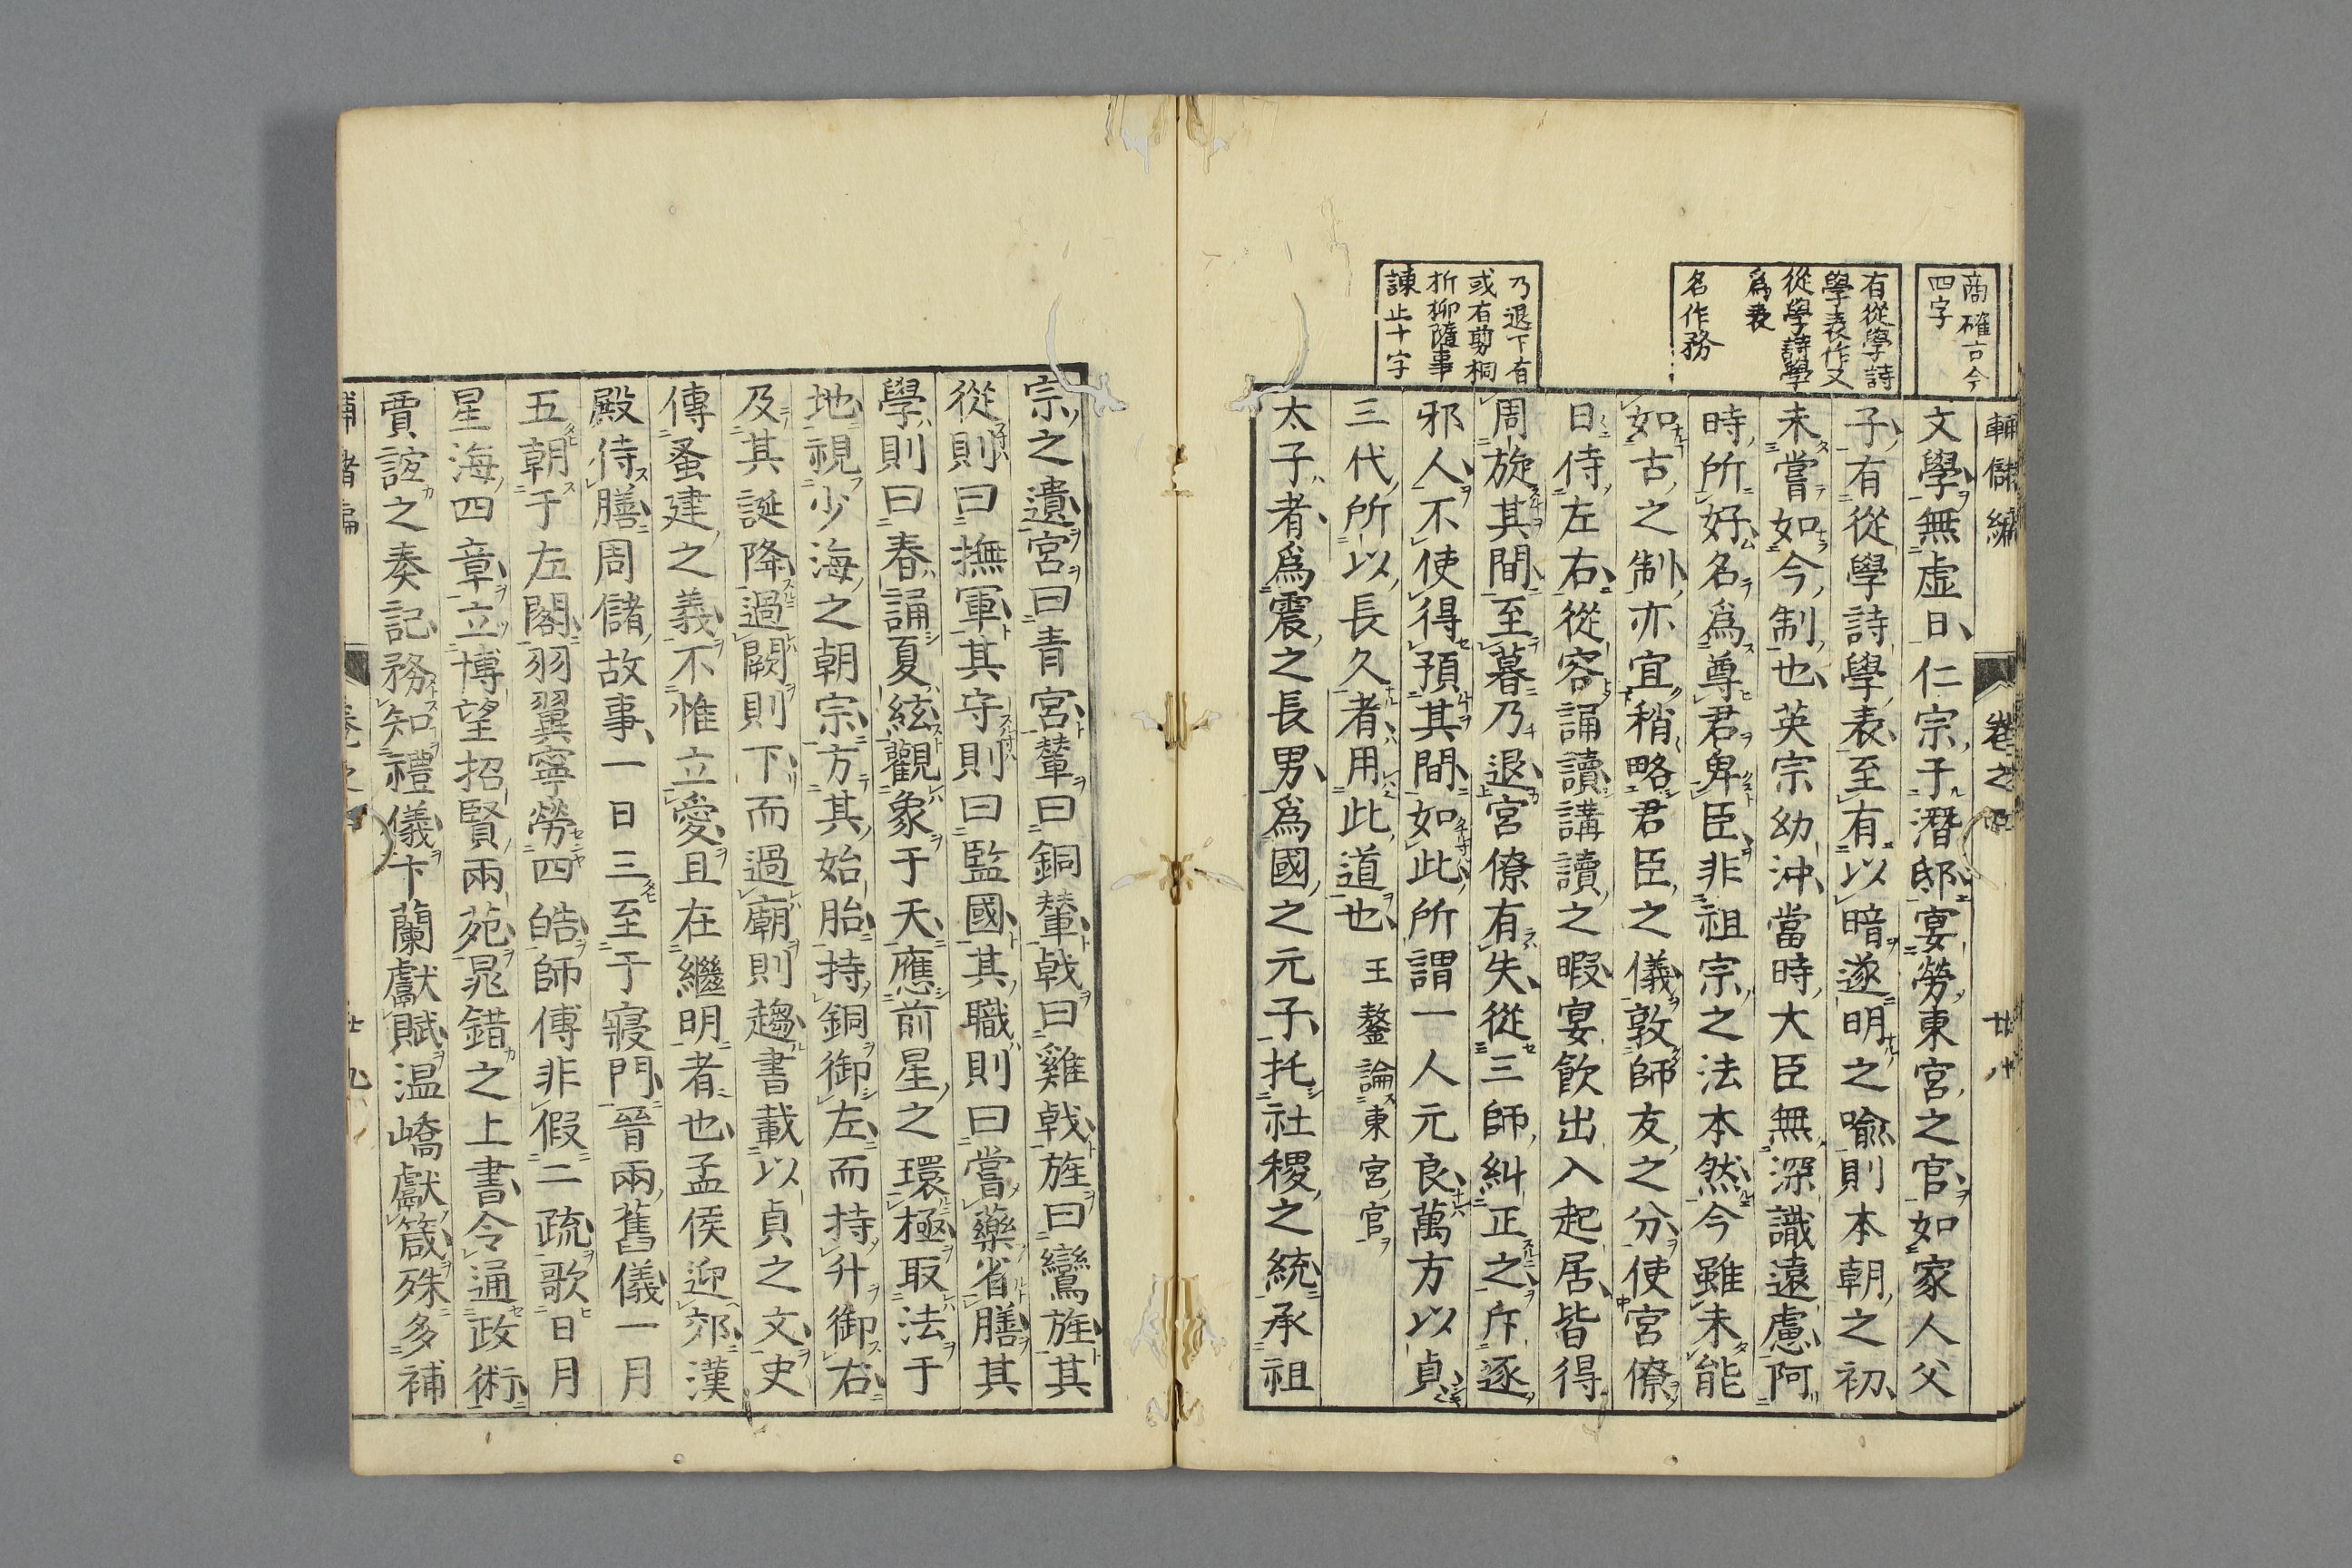 輔儲編 卷之四 廿八
商確古今
四字
有從學詩
學表作又
從學詩學
爲表
名作務
乃退下有
或有剪桐
折柳隨事
諫止十字
文學無虚日仁宗于潛邸宴勞東宮之官如家人父
子有從學詩學表至有以暗遂明之喩則本朝之初
未嘗如今制也英宗幼沖當時大臣無深識遠慮阿
時所好名爲尊君卑臣非祖宗之法本然今雖未能
如古之制亦宜稍略君臣之儀敦師友之分使宮僚
日侍左右從容誦讀講讀之暇宴飮出入起居皆得
周旋其間至暮乃退宮僚有失從三師糾正之斥逐
邪人不使得預其間如此所謂一人元良萬方以貞
三代所以長久者用此道也 王鏊論東宮官
太子者爲震之長男爲國之元子托社稷之統承祖
宗之遺宮曰青宮輦曰銅輦戟曰雞戟旌曰鸞旌其
從則曰撫軍其守則曰監國其職則曰嘗藥省膳其
學則曰春誦夏絃觀象于天應前星之環極取法于
地視少海之朝宗方其始胎持銅御左而持升御右
及其誕降過闕則下而過廟則趨書載以貞之文史
傳蚤建之義不惟立愛且在繼明者也孟侯迎郊漢
殿侍膳周儲故事一日三至于寢門晉兩舊儀一月
五朝于左閣羽翼寧勞四皓師傅非假二疏歌日月
星海四章立博望招賢兩苑晁錯之上書令通政術
賈誼之奏記務知禮儀卞蘭獻賦温嶠獻箴殊多補